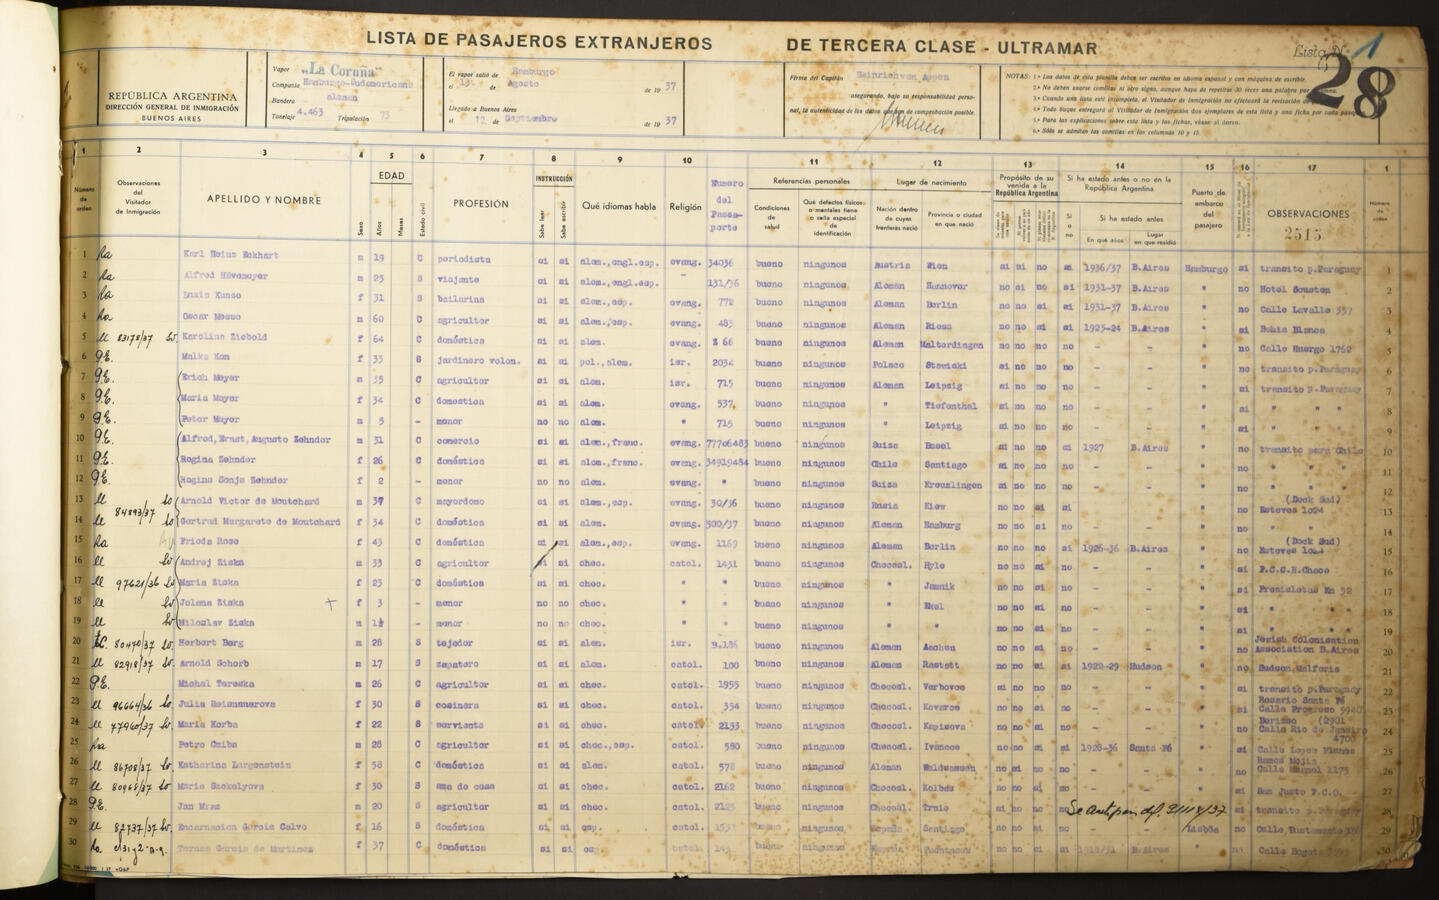 LISTA DE PASAJEROS EXTRANJEROS DE TERCERA CLASE - ULTRAMAR
Lista N. 1
28
REPÚBLICA ARGENTINA
DIRECCIÓN GENERAL DE INMIGRACIÓN
BUENOS AIRES
Vapor "La Coruña"
Compañía Hamburgo-Sudamericana
Bandera aleman
Tonelaje 4.463 Tripulación 75
El vapor salió de Hamburgo
el 13 de Agosto de 1937
Llegado a Buenos Aires
el 12 de Septiembre de 1937
Firma del Capitán Heinrich von Appen
asegurando, bajo su responsabilidad personal, la autenticidad de los datos que son de comprobación posible.
NOTAS: 1.ª Los datos de esta planilla deben ser escritos en idioma español y con máquina de escribir.
2.ª No deben usarse comillas ni otro signo, aunque haya de repetirse 30 veces una palabra por columna.
3.ª Cuando una lista esté incompleta, el Visitador de Inmigración no efectuará la revisación
4.ª Todo buque entregará al Visitador de Inmigración dos ejemplares de esta lista y una ficha por cada
5.ª Para las explicaciones sobre esta lista y las fichas, véase al dorso.
6.ª Sólo se admiten las comillas en las columnas 10 y 15.
1 2 3 4 5 6 7 8 9 10 11 12 13 14 15 16 17 1
Número de orden
Observaciones del Visitador de Inmigración
APELLIDO Y NOMBRE
Sexo
EDAD
Años
Meses
Estado civil
PROFESIÓN
INSTRUCCIÓN
Sabe leer
Sabe escribir
Qué idiomas habla
Religión
Numero del Passaporte
Referencias personales
Condiciones de salud
Qué defectos físicos o mentales tiene o seña especial de identificación
Lugar de nacimiento
Nación dentro de cuyas fronteras nació
Provincia o ciudad en que nació
Propósito de su venida a la República Argentina
Si ha estado antes o no en la República Argentina
Sí o no
Si ha estado antes
En qué años
Lugar en que residió
Puerto de embarco del pasajero
OBSERVACIONES
2515
Número de orden
1 Karl Heinz Eckhart m 19 C periodista si si alem.,engl.esp. 34036 bueno ningunos Austria Wien si si no si 1936/37 B.Aires Hamburgo si transito p.Paraguay 1
2 Alfred Hüvemeyer m 25 S viajante si si alem.,engl.esp. - 131/36 bueno ningunos Aleman Hannover no si no si 1931-37 B.Aires " no Hotel Bouston 2
3 Luzie Kunze f 31 S bailarina si si alem.,esp. evang. 772 bueno ningunos Aleman Berlin no no si si 1931-37 B.Aires " no Calle Lavalle 357 3
4 Oscar Messe m 60 C agricultor si si alem.,esp. evang. 485 bueno ningunos Aleman Riesa no no si si 1923-24 B.Aires " si Bahia Blanca 4
5 83178/37 Karoline Ziebold f 64 C doméstica si si alem. evang. 266 bueno ningunos Aleman Malterdingen no no si no - - " no Calle Huergo 1762 5
6 P.E. Malka Kon f 33 S jardinero volon. si si pol.,alem. isr. 2034 bueno ningunos Polaco Stawiski si no no no - - " no transito p.Paraguay 6
7 P.E. Erich Meyer m 35 C agricultor si si alem. isr. 715 bueno ningunos Aleman Leipzig si no no no - - " si transito p.Paraguay 7
8 P.E. Maria Meyer f 34 C domestica si si alem. evang. 537 bueno ningunos " Tiefenthal si no no no - - " si " " 8
9 P.E. Peter Meyer m 5 - menor no no alem. " 715 bueno ningunos " Leipzig si no no no - - " si " " 9
10 P.E. Alfred,Ernst,Augusto Zehnder m 31 C comercio si si alem.,franc. evang. 77706483 bueno ningunos Suiza Basel si no no si 1927 B.Aires " no transito para Chile 10
11 P.E. Regina Zehnder f 26 C doméstica si si alem.,franc. evang. 34919484 bueno ningunos Chile Santiago si no no no - - " no " " 11
12 P.E. Regina Sonja Zehnder f 2 - menor no no alem. evang. " bueno ningunos Suiza Kreuzlingen si no no no - - " no " " 12
13 Arnold Victor de Moutchard m 37 C mayordomo si si alem.,esp. evang. 30/36 bueno ningunos Rusia Kiew no no si si - - " no (Dock Sud) Esteves 1024 13
84893/37
14 Gertrud Margarete de Moutchard f 34 C doméstica si si alem. evang. 300/37 bueno ningunos Aleman Hamburg no no si no - - " no " " 14
15 Frieda Rose f 43 C doméstica si si alem.,esp. evang. 1169 bueno ningunos Aleman Berlin no no no si 1926-36 B.Aires " no (Dock Sud) Esteves 1024 15
16 Andrej Ziska m 33 C agricultor si si chec. catol. 1431 bueno ningunos Checosl. Hyle no no si no - - " si P.C.C.H.Chaco 16
17 97621/36 Maria Ziska f 23 C doméstica si si chec. " " bueno ningunos " Jamnik no no si no - - " si 17
18 Jolana Ziska f 3 - menor no no chec. " " bueno ningunos " no no si no - - " si " " 18
19 Miloslav Ziska m - menor no no chec. " " bueno ningunos " " no no si no - - " si " " 19
20 80470/37 Herbert Berg m 28 S tejedor si si alem. isr. bueno ningunos Aleman Aachen no no si no - - " no Jewish Colonisation Association B.Aires 20
21 82918/37 Arnold Schorb m 17 S zapatero si si alem. catol. 100 bueno ningunos Aleman Rastatt no no si si 1922-29 Hudson " no Hudson,Malteria 21
22 P.E. Michal Tereska m 26 C agricultor si si chec. catol. 1955 bueno ningunos Checosl. Verbovce si no no no - - " si transito p.Paraguay 22
23 96664/36 Julia Heismanerova f 30 S cosinera si si chec. catol. 354 bueno ningunos Checosl. Kovarce no no si no - - " no Rosario Santa Fé Calle Progreso 5940 23
24 77960/37 Maria Korba f 22 S servienta si si chec. catol. 2153 bueno ningunos Checosl. Kapisova no no si no - - " no Berisso (2901 Calle Rio de Janeiro 4700 24
25 Petro Cziba m 28 C agricultor si si chec.,esp. catol. 580 bueno ningunos Checosl. Ivanoce no no si si 1928-36 Santa Fé " si Calle Lopez Planes 25
26 86708/37 Katharina Lurgenstein f 58 C doméstica si si alem. catol. 578 bueno ningunos Aleman Waldsassen no si no no - - " no Ramos Mejia 1175 26
27 80968/37 Marie Szekelyova f 30 S ama de casa si si chec. catol. 2162 bueno ningunos Checosl. Kolbas no no si no - - " no San Justo F.C.O. 27
28 P.E. Jan Mraz m 20 S agricultor si si chec. catol. 2125 bueno ningunos Checosl. si no no no " si transito p.Paraguay 28
29 82737/37 Encarnacion Garcia Calvo f 16 S doméstica si si esp. catol. bueno ningunos España Santiago no no si no - - Lisbôa no Calle Bustamante 29
30 Teresa Garcia de Martinez f 37 C doméstica si si esp catol. bueno ningunos España no no si si B.Aires " no Calle Bogota 30